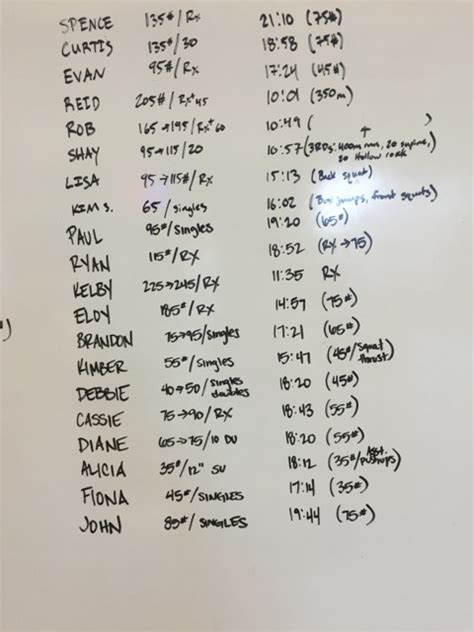 SPENCE 135#/Rx 21:10 (75#)
CURTIS 135#/30 18:58 (75#)
EVAN 95#/Rx 17:24 (45#)
REID 205#/Rx+45 10:01 (350m)
ROB 165→195/Rx+60 10:49 ( )
SHAY 95→115/20 10:57 (3RDS: 400m run, 20 supine, 20 Hollow rocks
LISA 95→115#/Rx 15:13 (Back squat)
KIM S. 65/singles 16:02 (Box jumps, front squats)
PAUL 95#/singles 19:20 (65#)
RYAN 115#/Rx 18:52 (Rx→75)
KELBY 225→245/Rx 11:35 Rx
ELOY 185#/Rx 14:57 (75#)
BRANDON 75→95/singles 17:21 (65#)
KIMBER 55#/singles 15:47 (45#/Squat thrust)
DEBBIE 40→50/singles doubles 18:20 (45#)
CASSIE 75→90/Rx 18:43 (55#)
DIANE 65→75/10 DU 18:20 (55#)
ALICIA 35#/12" SU 18:12 (35#/Asst. pushups)
FIONA 45#/SINGLES 17:14 (35#)
JOHN 85#/SINGLES 19:44 (75#)